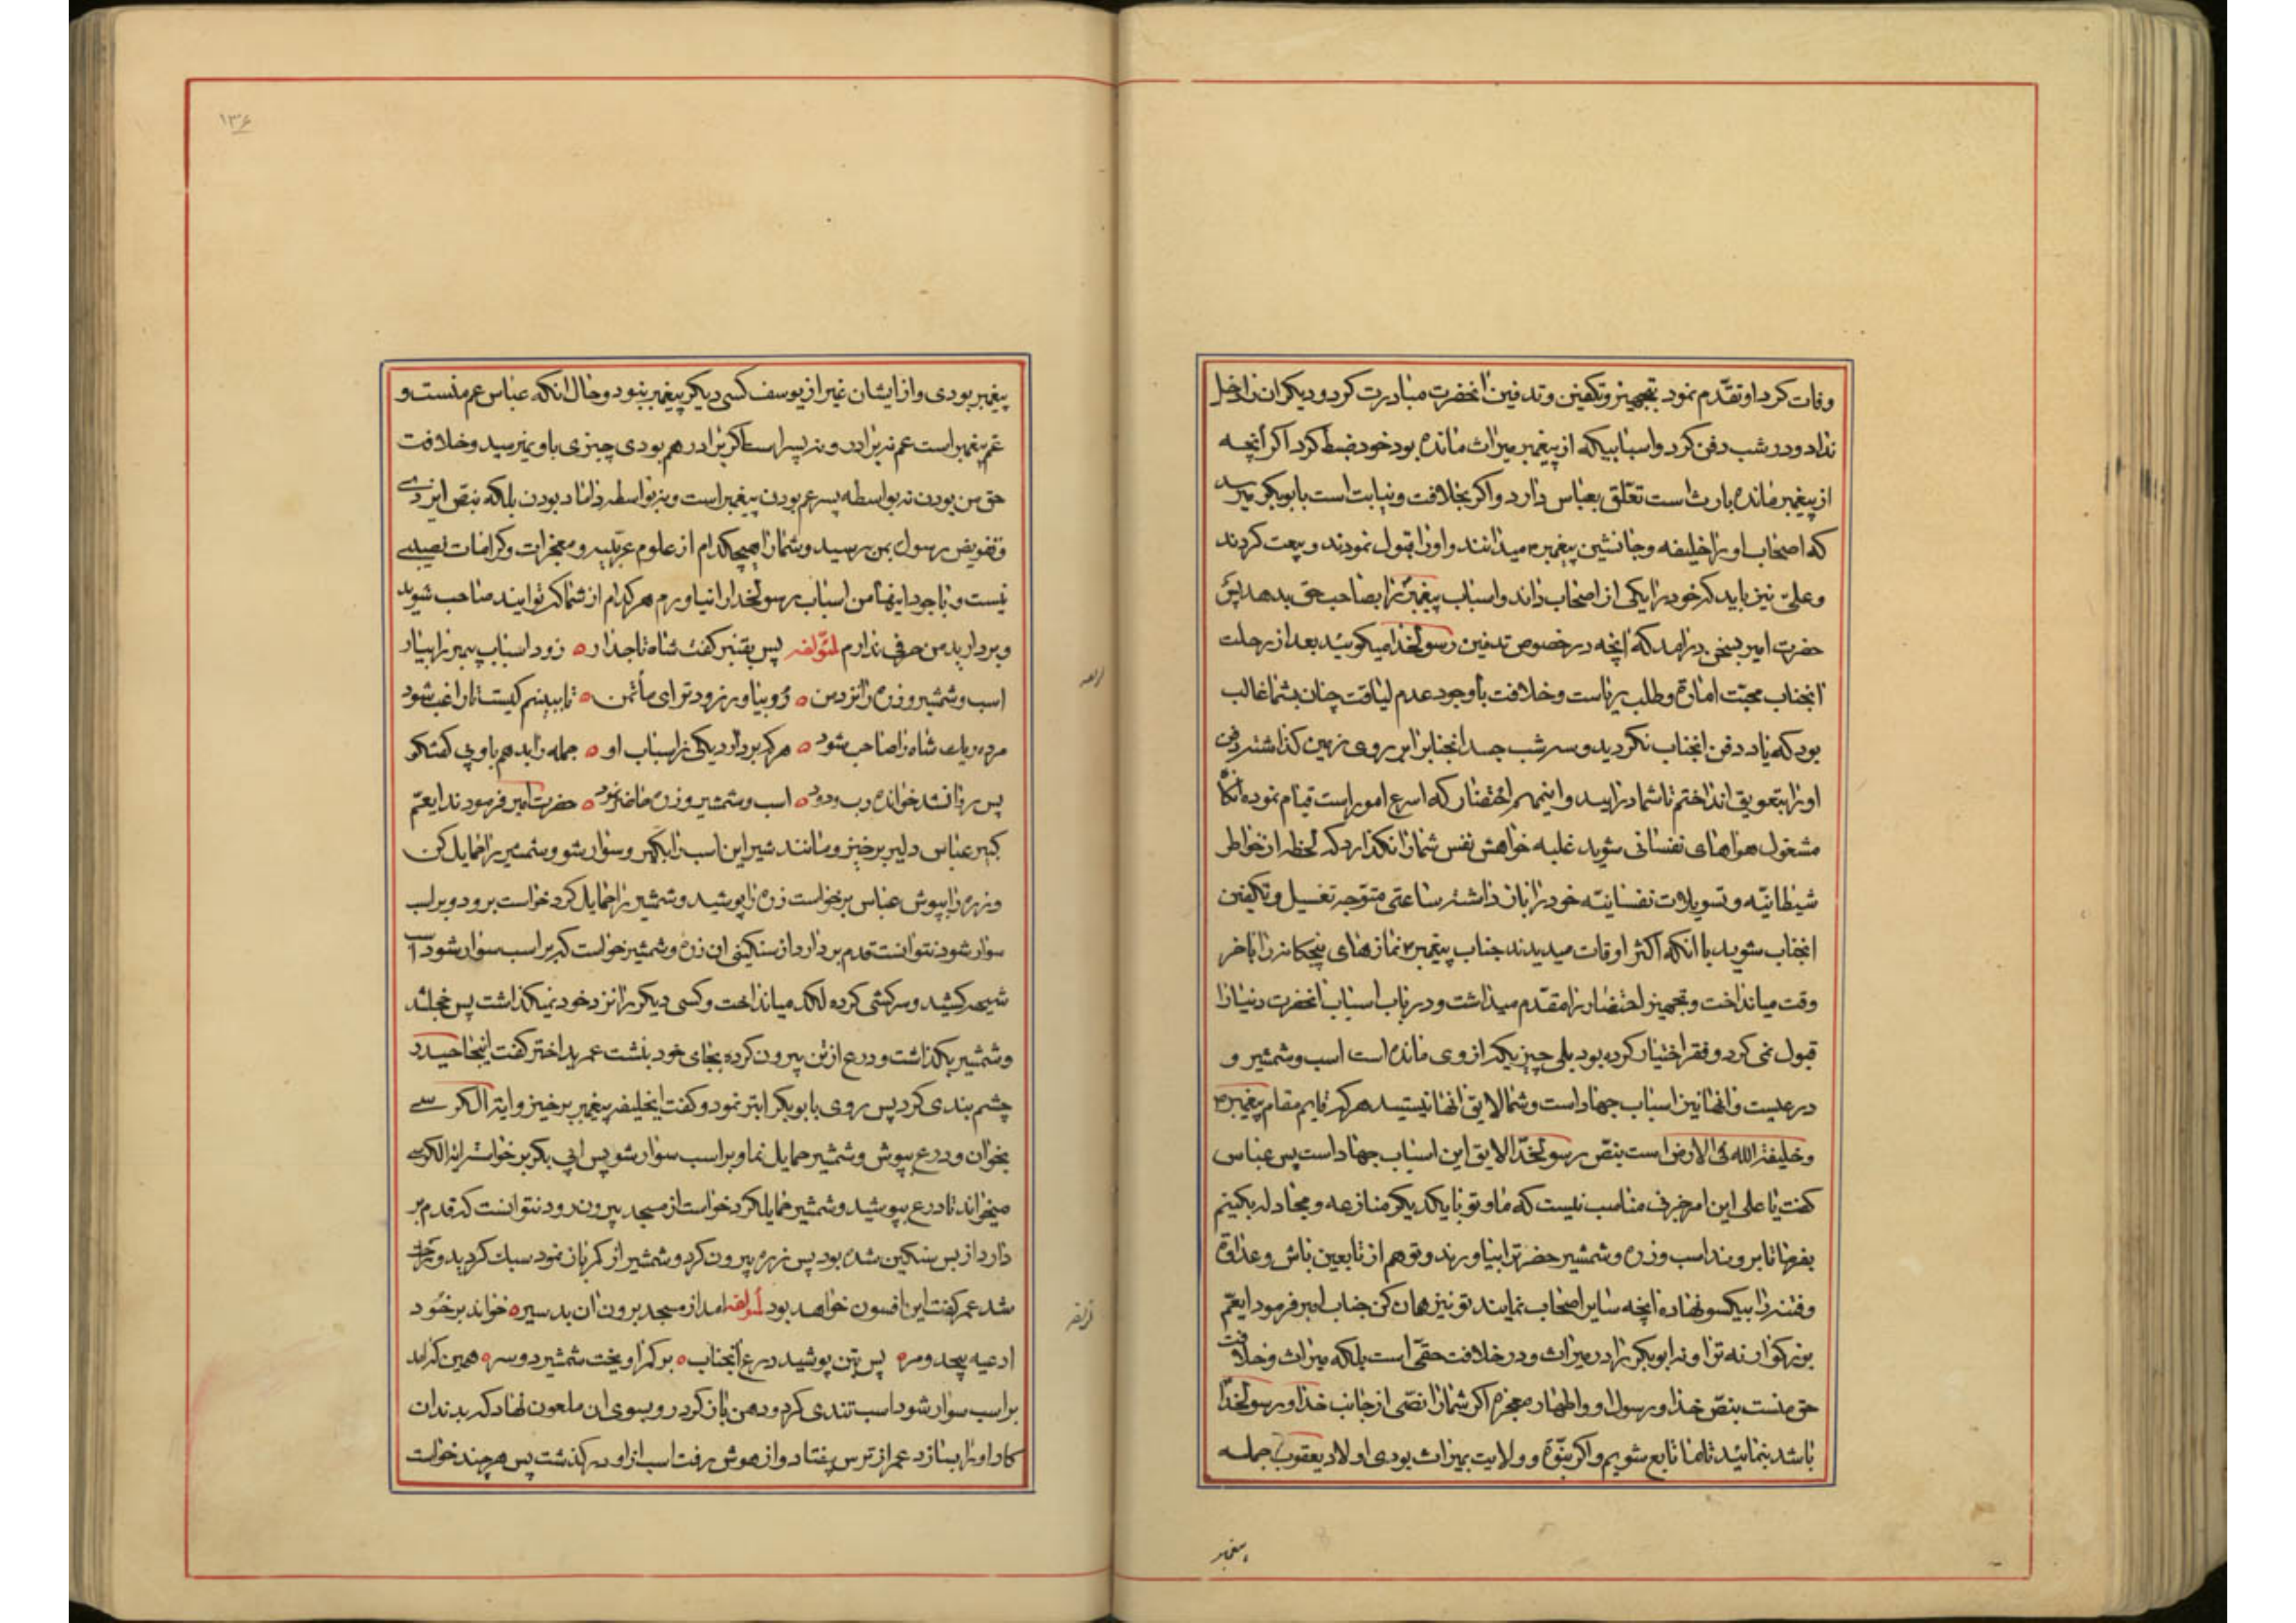 وفات کرد او تقدّم نمود بتجهیز و تکفین و تدفین انحضرت مبادرت کرد و دیکران را دخل
نداد و در شب دفن کرد و اسبابیکه از پیغمبر میراث مانده بود خود ضبط کرد اکر آنچه
از پیغمبر مانده بارث است تعلّق بعباس دارد و اکر بخلافت و نیابت است بابوبکر میرسد
که اصحاب او را خلیفه و جانشین پیغمبر میدانند و او را قبول نمودند و بیعت کردند
و علی نیز باید که خود را یکی از اصحاب داند و اسباب پیغمبر را بصاحب حق بدهد پس
حضرت امیر بسخن درامد که آنچه در خصوص تدفین رسولخدا میکوئید بعد از رحلت
انجناب محبّت اماره و طلب ریاست و خلافت باوجود عدم لیاقت چنان بشما غالب
بود که یاد دفن انجناب نکردید و سه شب جسد انجناب را بر روی زمین کذاشته دفن
او را بتعویق انداختم تا شما درایید و اینمهم احتضار که اسرع امور است قیام نموده آنکاه
مشغول هواهای نفسانی شوید غلبه خواهش نفس شما را نکذارد که لحظه از خواطر
شیطانیّه و تسویلات نفسانیّه خود را باز داشته ساعتی متوّجه تغسیل و تکفین
انجناب شوید با انکه اکثر اوقات میدیدند جناب پیغمبر نمازهای پنجکانه را باخر
وقت میانداخت و تجهیز احتضار را مقدّم میداشت و در باب اسباب انحضرت دنیا را
قبول نمی کرد و فقر اختیار کرده بود بلی چیزیکه از وی مانده است اسب و شمشیر و
درعیست و انها نیز اسباب جهاد است و شما لایق انها نیستید هر که قایم مقام پیغمبر
و خلیفة الله فی الارض است بنصّ رسولخدا لایق این اسباب جهاد است پس عباس
کفت یا علی این امر حرفی مناسب نیست که ما و تو با یکدیکر منازعه و مجادله بکنیم
بفرما تا بروند اسب و زره و شمشیر حضرترا بیاورند و تو هم از تابعین باش و عداوة
و فتنه را بیکسو نهاده انچه سایر اصحاب نمایند تو نیز همان کن جناب امیر فرمود ایعمّ
بزرکوار نه ترا و نه ابوبکر را در میراث و در خلافت حقی است بلکه میراث و خلافت
حق منست بنصّ خدا و رسول او و اظهار معجزه اکر شما را نصّی از جانب خدا و رسولخدا
باشد بنمائید تا ما تابع شویم و اکر نبوّة و ولایت بمیراث بودی اولاد یعقوب جمله
پیغمبر
۱۳۶
پیغمبر بودی و از ایشان غیر از یوسف کسی دیکر پیغمبر نبود و حال انکه عباس عم منست و
عم پیغمبر است عم نه برادر و نه پسر است اکر برادر هم بودی چیزی باو نمیرسید و خلافت
حق من بودن نه بواسطه پسر عم بودن پیغمبر است و نه بواسطه داماد بودن بلکه بنص ایزدی
و تفویض رسول بمن رسید و شما را هیچکدام از علوم غریبه و معجزات و کرامات نصیبی
نیست و باوجود اینها من اسباب رسولخدا را بیاورم هر کدام از شما که توانید صاحب شوید
و بردارید من حرفی ندارم لمؤلفه پس بقنبر کفت شاه تاجدار ه زود اسباب پیمبر را بیار
اسب و شمشیر و زره را نزد من ه رو بیاور زود تر ای مأتمن ه تا ببینم کیست تا راغب شود
مرده ریك شاه را صاحب شود ه هر که بردارد یکی ز اسباب او ه جمله را بدهم باو بی کفتکو
پس روانشد خوانده رب ودود ه اسب و شمشیر و زره حاضر نمود ه حضرت امیر فرمودند ایعمّ
کبیر عباس دلیر برخیز و مانند شیر این اسب را بکیر و سوار شو و شمشیر را حمایل کن
و زره را بپوش عباس برخواست زره را پوشید و شمشیر را حمایل کرد خواست برود و بر اسب
سوار شود نتوانست قدم بردارد از سنکینی ان زره و شمشیر خواست که بر اسب سوار شود اسب
شیهه کشید و سرکشی کرده لکد میانداخت و کسی دیکر را نزد خود نمیکذاشت پس خجل شد
و شمشیر بکذاشت و درع از تن بیرون کرده بجای خود بنشست عمر بد اختر کفت اینجا حیدر
چشم بندی کرد پس روی بابوبکر ابتر نمود و کفت ایخلیفه پیغمبر برخیز و ایة الکرسی
بخوان و درع بپوش و شمشیر حمایل نما و بر اسب سوار شو پس ابی بکر برخواست ایة الکرسی
میخواند تا درع بپوشید و شمشیر حمایل کرد خواست از مسجد بیرون رود نتوانست که قدم بر
دارد از بس سنکین شده بود پس زره بیرون کرد و شمشیر از کمر باز نمود سبك کردید و
شد عمر کفت این افسون خواهد بود لمؤلفه امد از مسجد برون ان بد سیر ه خواند بر خود
ادعیه بیحد و مر ه پس بتن پوشید درع آنجناب ه بر کمر اویخت شمشیر دو سر ه همین که امد
بر اسب سوار شود اسب تندی کرد و دهن باز کرد رو بسوی ان ملعون نهاد که بدندان
کار او را بسازد عمر از ترس بیفتاد و از هوش رفت اسب از او در کذشت پس هر چند خواست